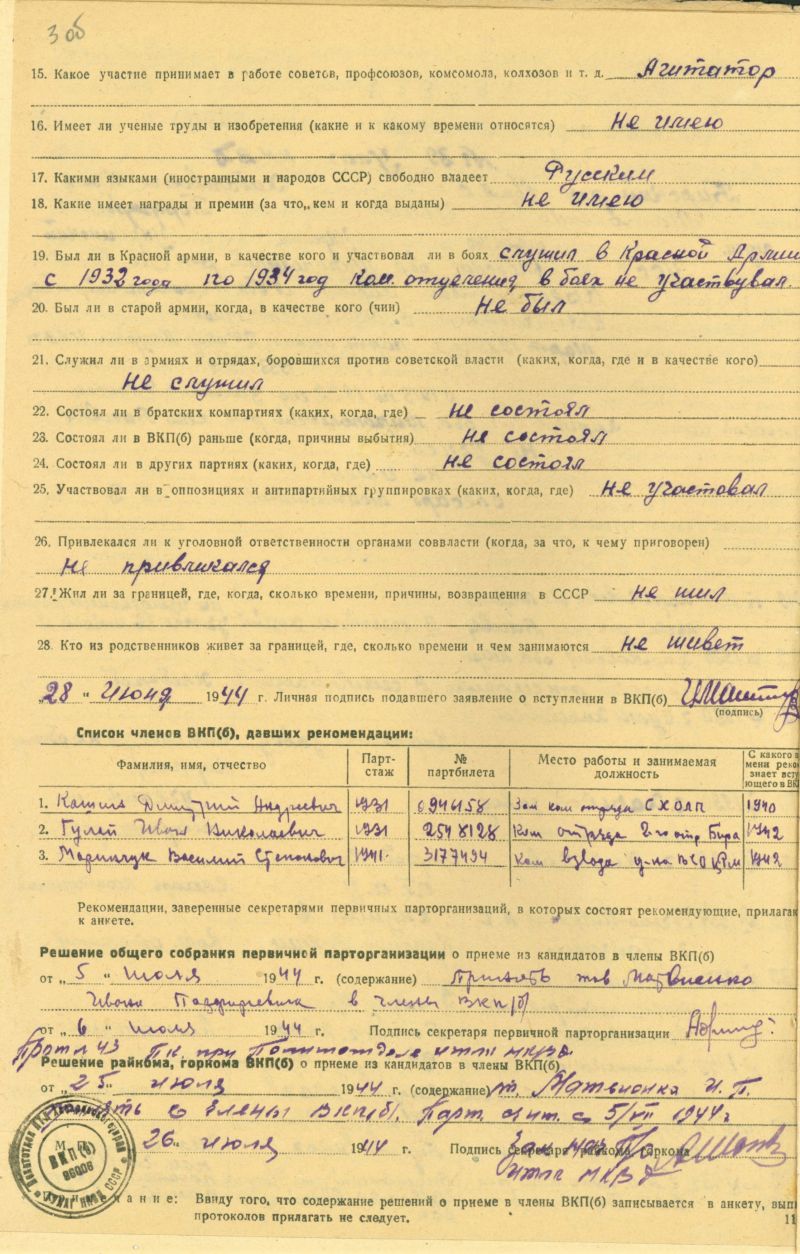 3 об
15. Какое участие принимает в работе советов, профсоюзов, комсомола, колхозов и т. д. Агитатор
16. Имеет ли ученые труды и изобретения (какие и к какому времени относятся) Не имею
17. Какими языками (иностранными и народов СССР) свободно владеет Русским
18. Какие имеет награды и премии (за что, кем и когда выданы) не имею
19. Был ли в Красной армии, в качестве кого и участвовал ли в боях служил в Красной Армии
с 1932 года по 1934 год Ком. отделения, в боях не участвувал.
20. Был ли в старой армии, когда, в качестве кого (чин) не был
21. Служил ли в армиях и отрядах, боровшихся против советской власти (каких, когда, где и в качестве кого)
не служил
22. Состоял ли в братских компартиях (каких, когда, где) не состоял
23. Состоял ли в ВКП(б) раньше (когда, причины выбытия) не состоял
24. Состоял ли в других партиях (каких, когда, где) не состоял
25. Участвовал ли в оппозициях и антипартийных группировках (каких, когда, где) не участовал
26. Привлекался ли к уголовной ответственности органами соввласти (когда, за что, к чему приговорен)
не привликался
27. Жил ли за границей, где, когда, сколько времени, причины, возвращения в СССР не жил
28. Кто из родственников живет за границей, где, сколько времени и чем занимаются не живет
„28 " июня 1944 г. Личная подпись подавшего заявление о вступлении в ВКП(б)
(подпись)
Список членов ВКП(б), давших рекомендации:
Фамилия, имя, отчество Парт-стаж № партбилета Место работы и занимаемая должность С какого в мени реко знает всту ющего в ВК
1. Дмитрий Андреевич 1931 0944158 Зам ком отряда СХОЛП 1940
2. Гулай Иван Николаевич 1931 2548128 Ком отряда Бира 1942
3. Маринчук Василий Степанович 1941 3177494 Ком взвода 1942
Рекомендации, заверенные секретарями первичных парторганизаций, в которых состоят рекомендующие, прилагак
к анкете.
Решение общего собрания первичной парторганизации о приеме из кандидатов в члены ВКП(б)
от „ 5 " июля 1944 г. (содержание) Принять тов Матвиенко
Ивана в члены ВКП/б/
от „ 6 " июля 1944 г. Подпись секретаря первичной парторганизации
Прот № 43 ПК при Политотделе итл НКВД
Решение райкома, горкома ВКП(б) о приеме из кандидатов в члены ВКП(б)
от „ 25 " июля 1944 г. (содержание) т. Матвиенка И. П.
в члены ВКП/б/. Парт. с 5/VII 1944 г
26 " июля 1944 г. Подпись секретаря райкома горкома Зам нач П/о
итла НКВД
М. П.
ВКП(б)
СССР
ание: Ввиду того, что содержание решений о приеме в члены ВКП(б) записывается в анкету, вып
протоколов прилагать не следует. 11